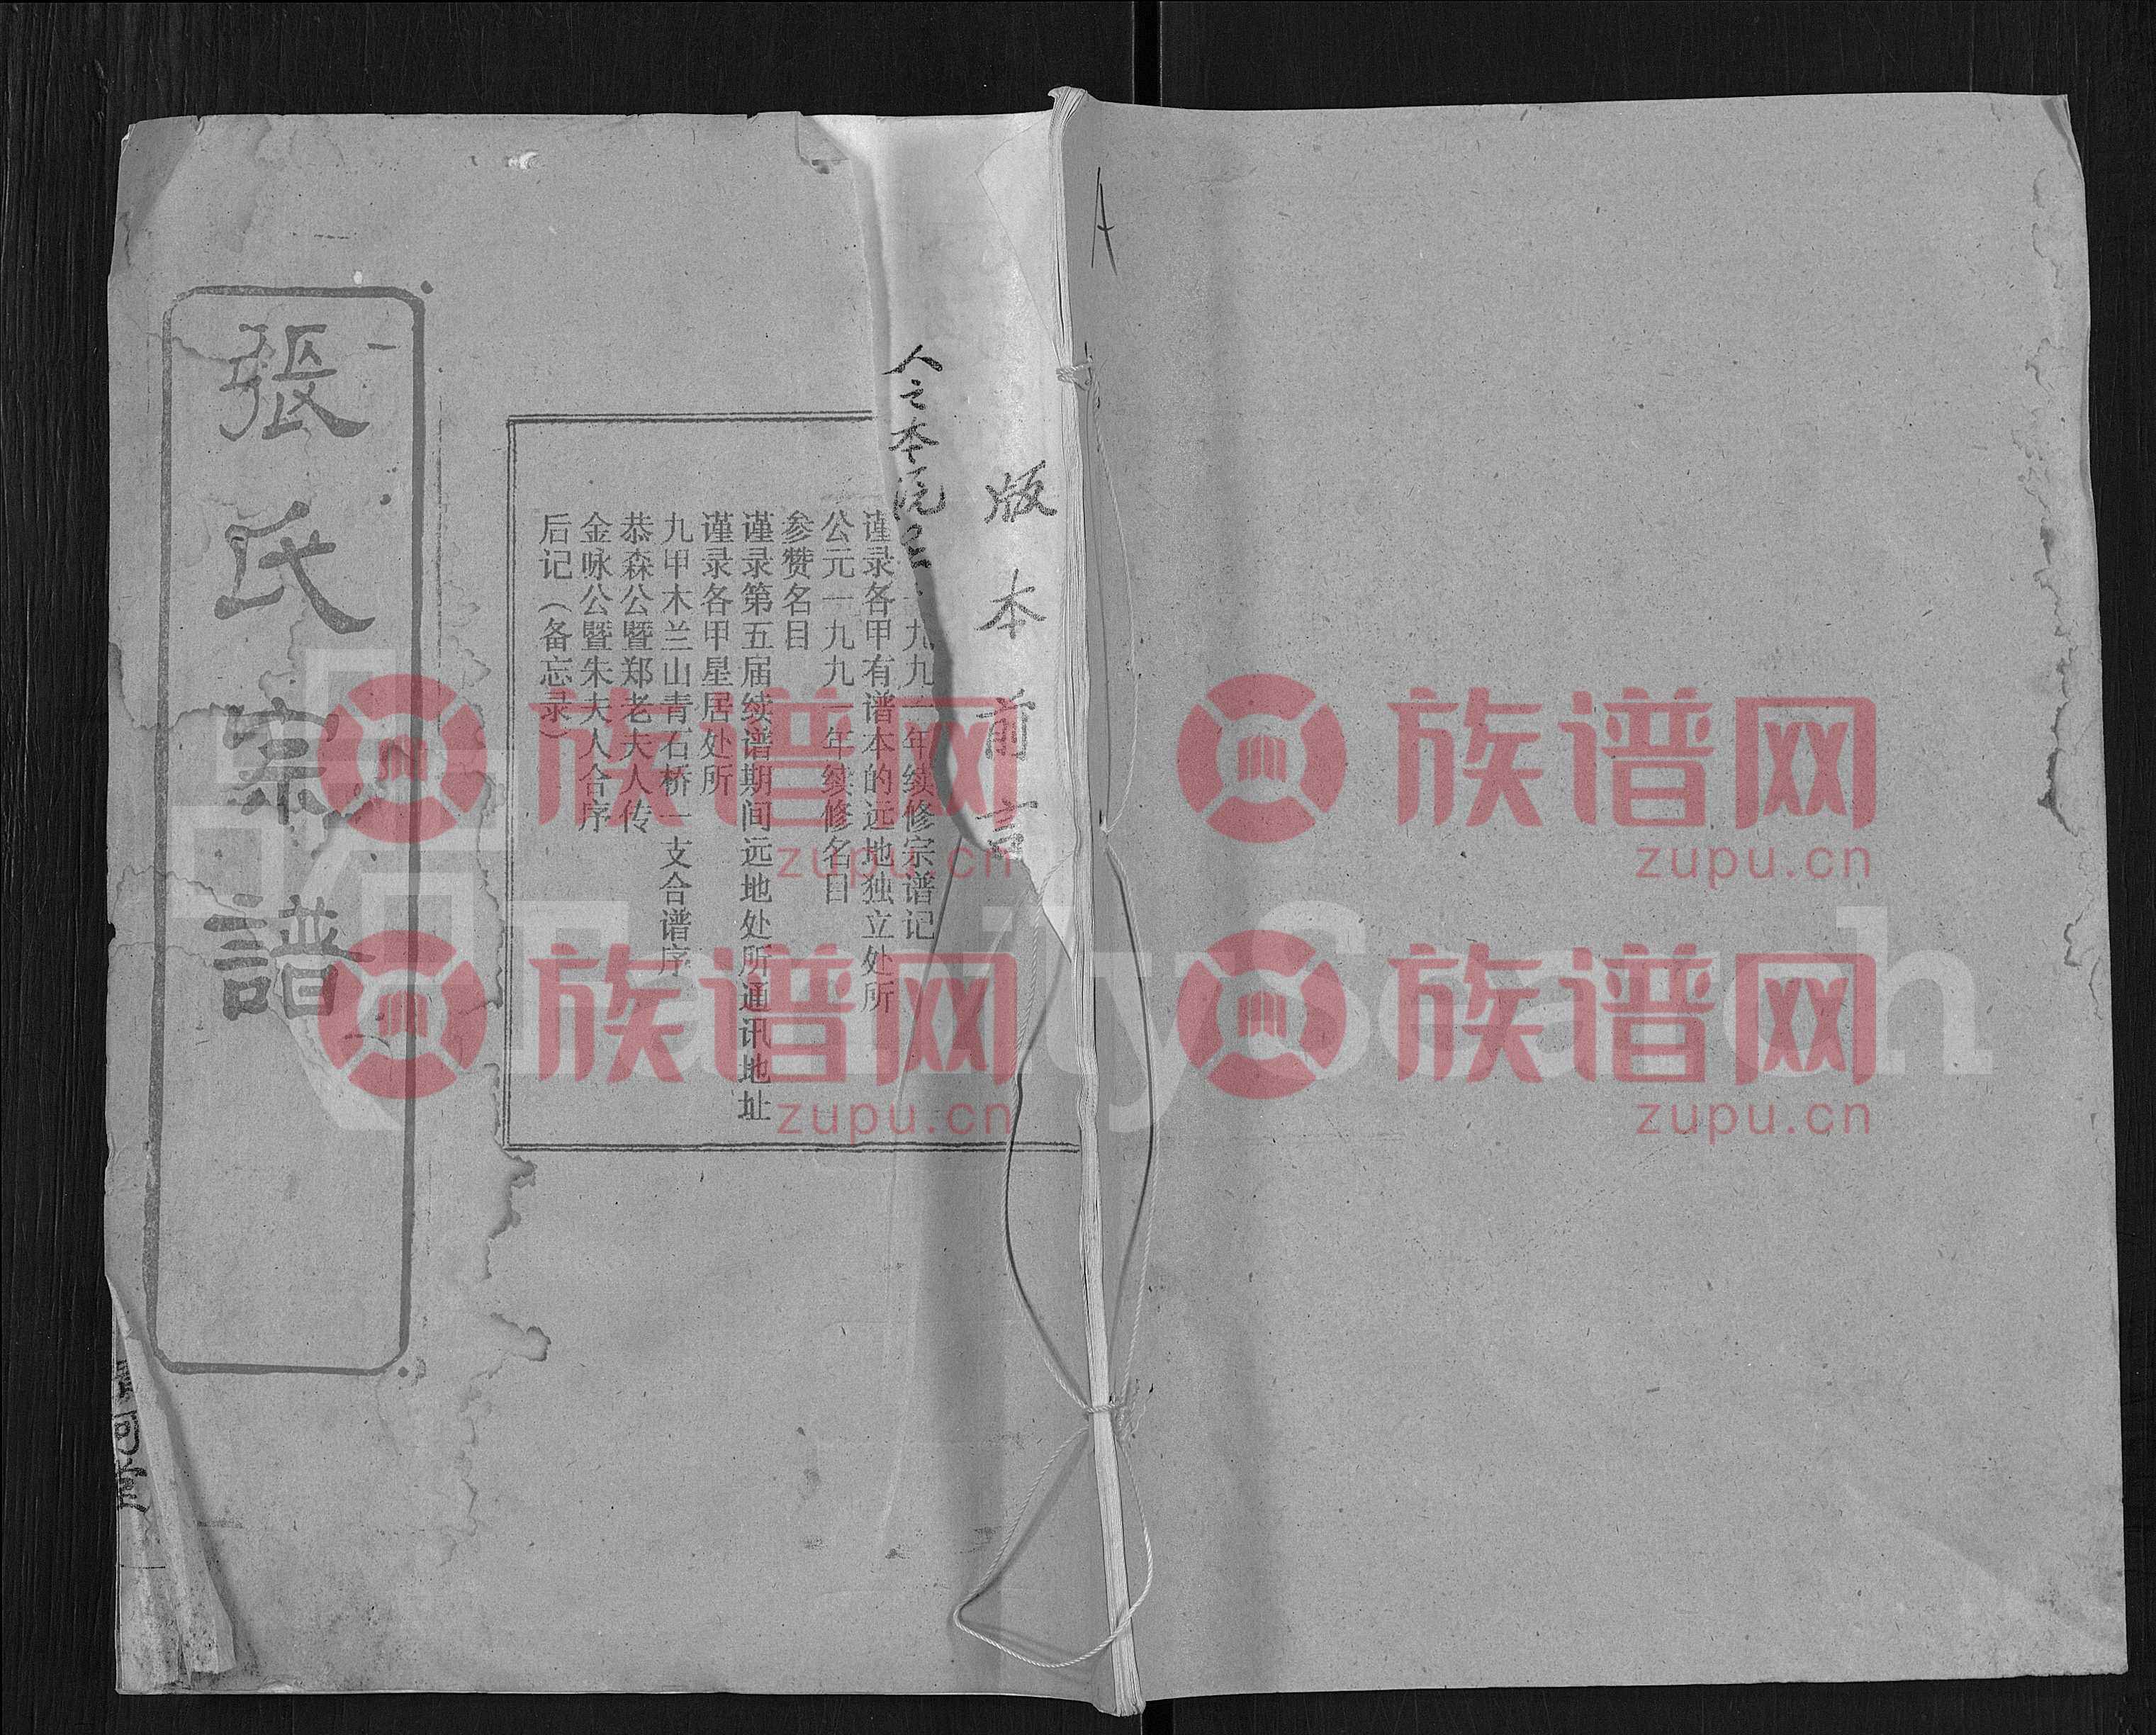 A
版本前言
人之本
一九九一年续修宗谱记
谨录各甲有谱本的远地独立处所
公元一九九一年续修名目
参赞名目
谨录第五届续谱期间远地处所通讯地址
谨录各甲星居处所
九甲木兰山青石桥一支合谱序
恭森公暨郑老夫人传
金咏公暨朱夫人合序
后记（备忘录）
張氏宗譜
河堂
族谱网
zupu.cn
族谱网
zupu.cn
族谱网
zupu.cn
族谱网
zupu.cn
FamilySearch